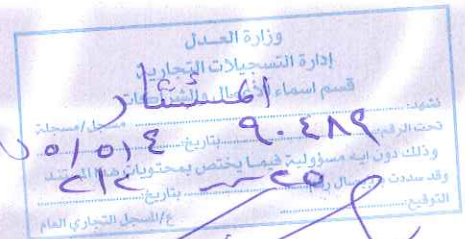 وزارة العدل
إدارة التسجيلات التجارية
قسم اسماء الأعمال والشراكات
المستشار
نشهد: مسجل/مسجلة
تحت الرقم: ٩٠٤٨٩ بتاريخ:
وذلك دون ايه مسؤولية فيما يختص بمحتويات هذا المستند
وقد سددت بإيصال رقم بتاريخ:
التوقيع: ع/المسجل التجاري العام